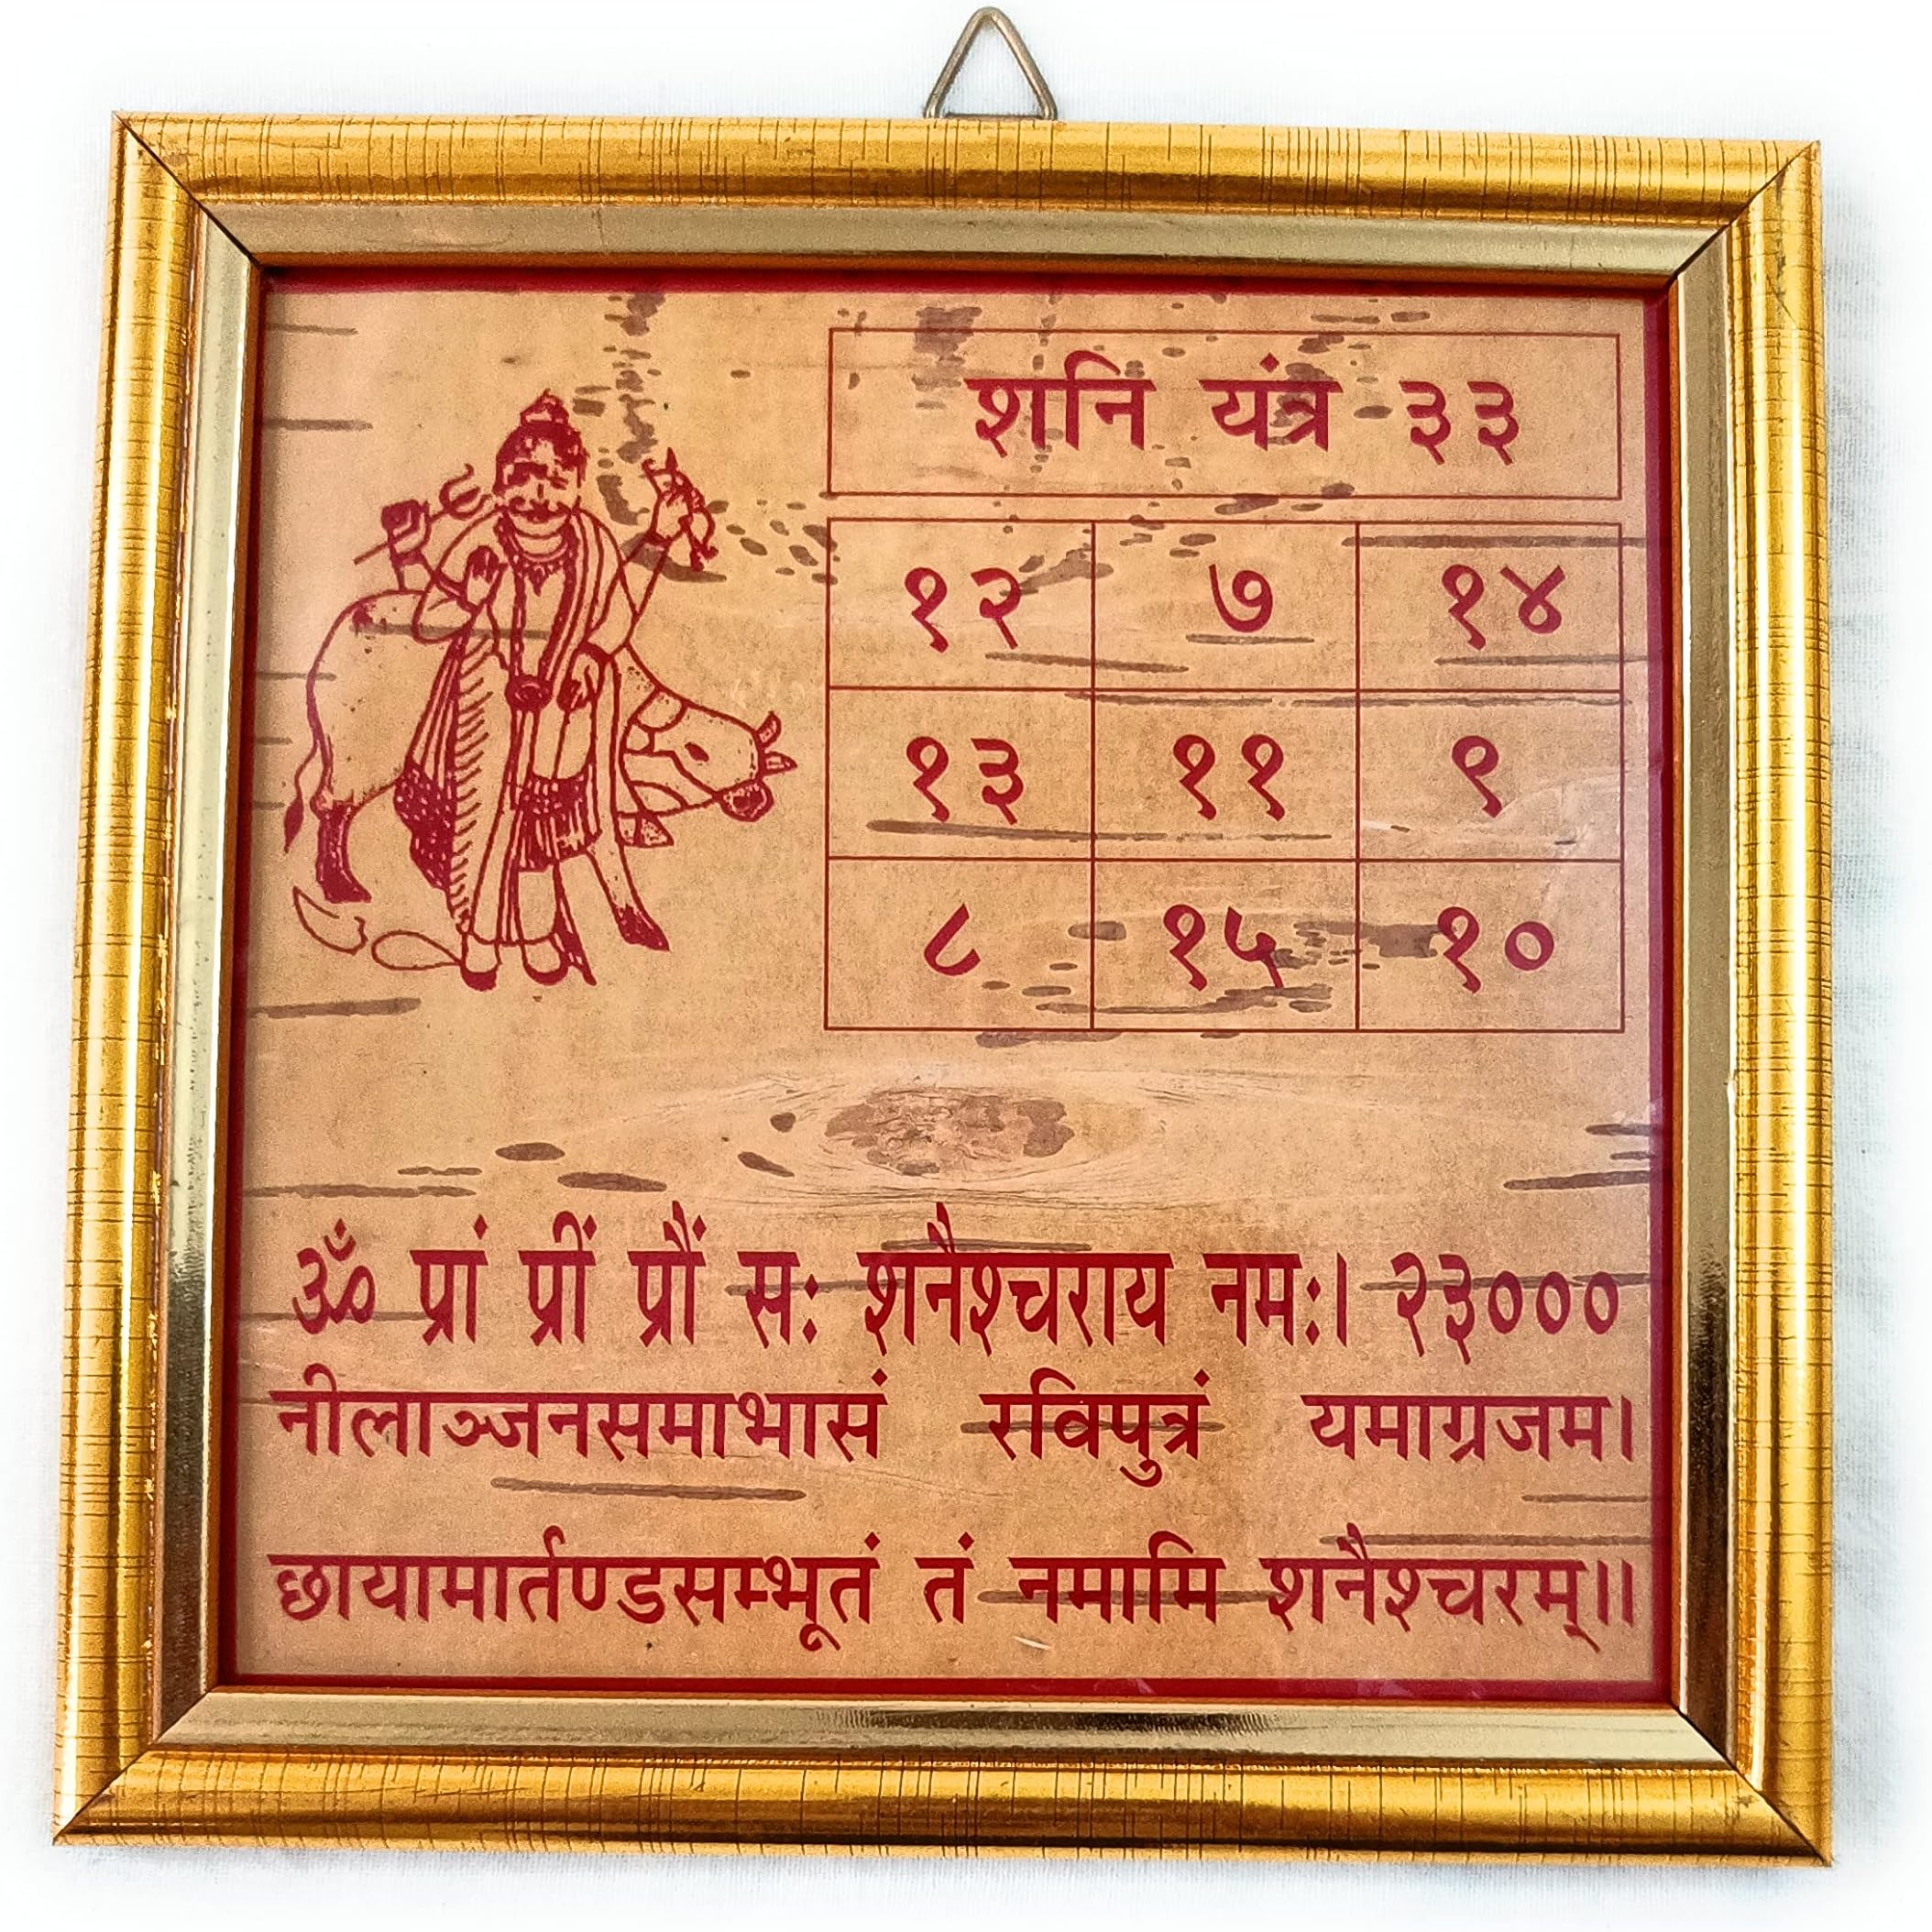 शनि यंत्र ३३
१२ ७ १४
१३ ११ ९
८ १५ १०
ॐ प्रां प्रीं प्रौं सः शनैश्चराय नमः। २३०००
नीलाञ्जनसमाभासं रविपुत्रं यमाग्रजम।
छायामार्तण्डसम्भूतं तं नमामि शनैश्चरम्॥